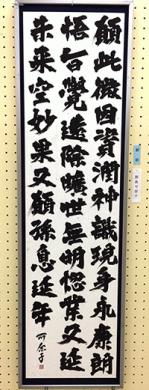 願此微因資潤神識現身永康朗
悟旨覺遠除曠世無明惣業又延
未来空妙果又願孫息延年